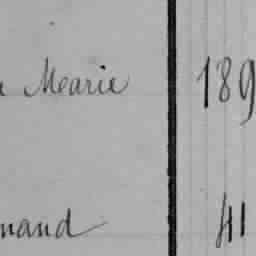 Marie 189
nand 41